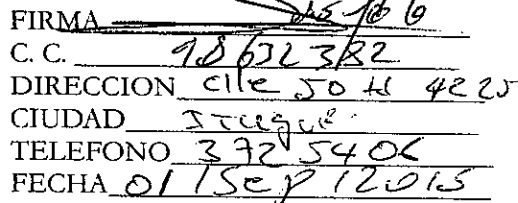 FIRMA
C. C. 18632382
DIRECCION clle 50 # 4225
CIUDAD
TELEFONO 3725406
FECHA 01/Sep/2015